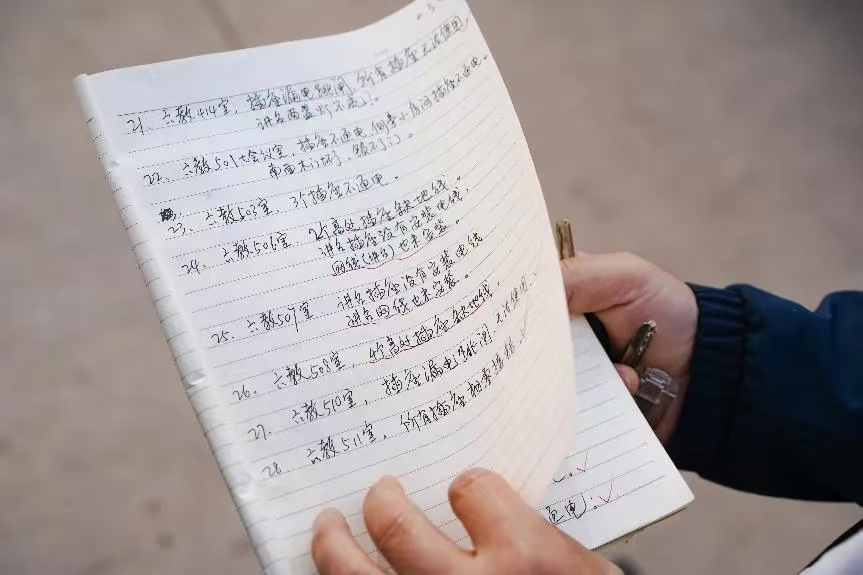 21、六教414室，插座漏电跳闸，所有插座无法使用，
讲台两盏灯不亮了。
22、六教501大会议室，插座不通电，侧旁小房间插座不通电。
南面木门坏了，锁不了门。
23、六教503室，3个插座不通电。
24、六教506室 2个高处插座缺地线。
讲台插座没有安装电线，
网线(讲台)也未安装。
25、六教507室 讲台插座没有安装电线
讲台网线也未安装。
26、六教508室，4个高处插座缺地线。
27、六教510室，插座漏电跳闸 无法使用。✓
28、六教511室，所有插座
通电。✓